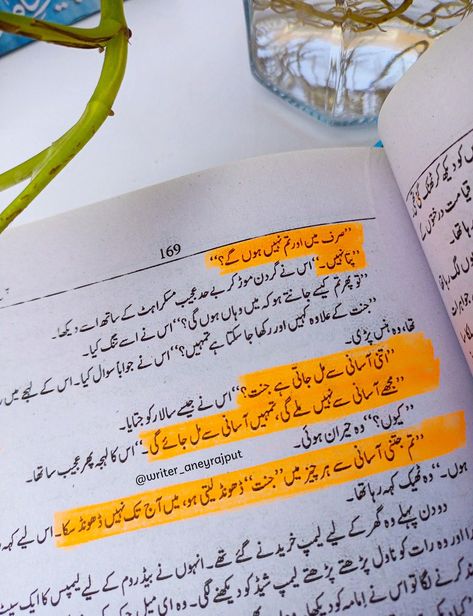 169
"صرف میں اور تم نہیں ہوں گے؟"
"پتا نہیں۔" اس نے گردن موڑ کر بے حد عجیب مسکراہٹ کے ساتھ اسے دیکھا۔
"تو پھر تم کیسے جانتے ہو کہ میں وہاں ہوں گی؟" اس نے اسے تنگ کیا۔
"جنت کے علاوہ کہیں اور رکھا جا سکتا ہے تمہیں؟" اس نے جواباً سوال کیا۔ اس کے لہجے میں
تھا، وہ ہنس پڑی۔
"اتنی آسانی سے مل جاتی ہے جنت؟" اس نے جیسے سالار کو جتایا۔
"مجھے آسانی سے نہیں ملے گی، تمہیں آسانی سے مل جائے گی۔" اس کا لہجہ پھر عجیب سا تھا۔
"کیوں؟" وہ حیران ہوئی۔
"تم جتنی آسانی سے ہر چیز میں "جنت" ڈھونڈ لیتی ہو، میں آج تک نہیں ڈھونڈ سکا۔ اس لیے کہہ
@writer_aneyrajput
ہوں۔" وہ ٹھیک کہہ رہا تھا۔
دو دن پہلے وہ گھر کے لیے لیمپ خریدنے گئے تھے۔ انہوں نے بیڈ روم کے لیے لیمپس کا ایک سیٹ
اور وہ رات کو ناول پڑھتے پڑھتے لیمپ شیڈ کو دیکھنے لگی۔ وہ ای میل
کرنے لگا تو اس نے امامہ کو
کو دیکھ کر ٹھٹک گئی
قیامت
رہا تھا۔